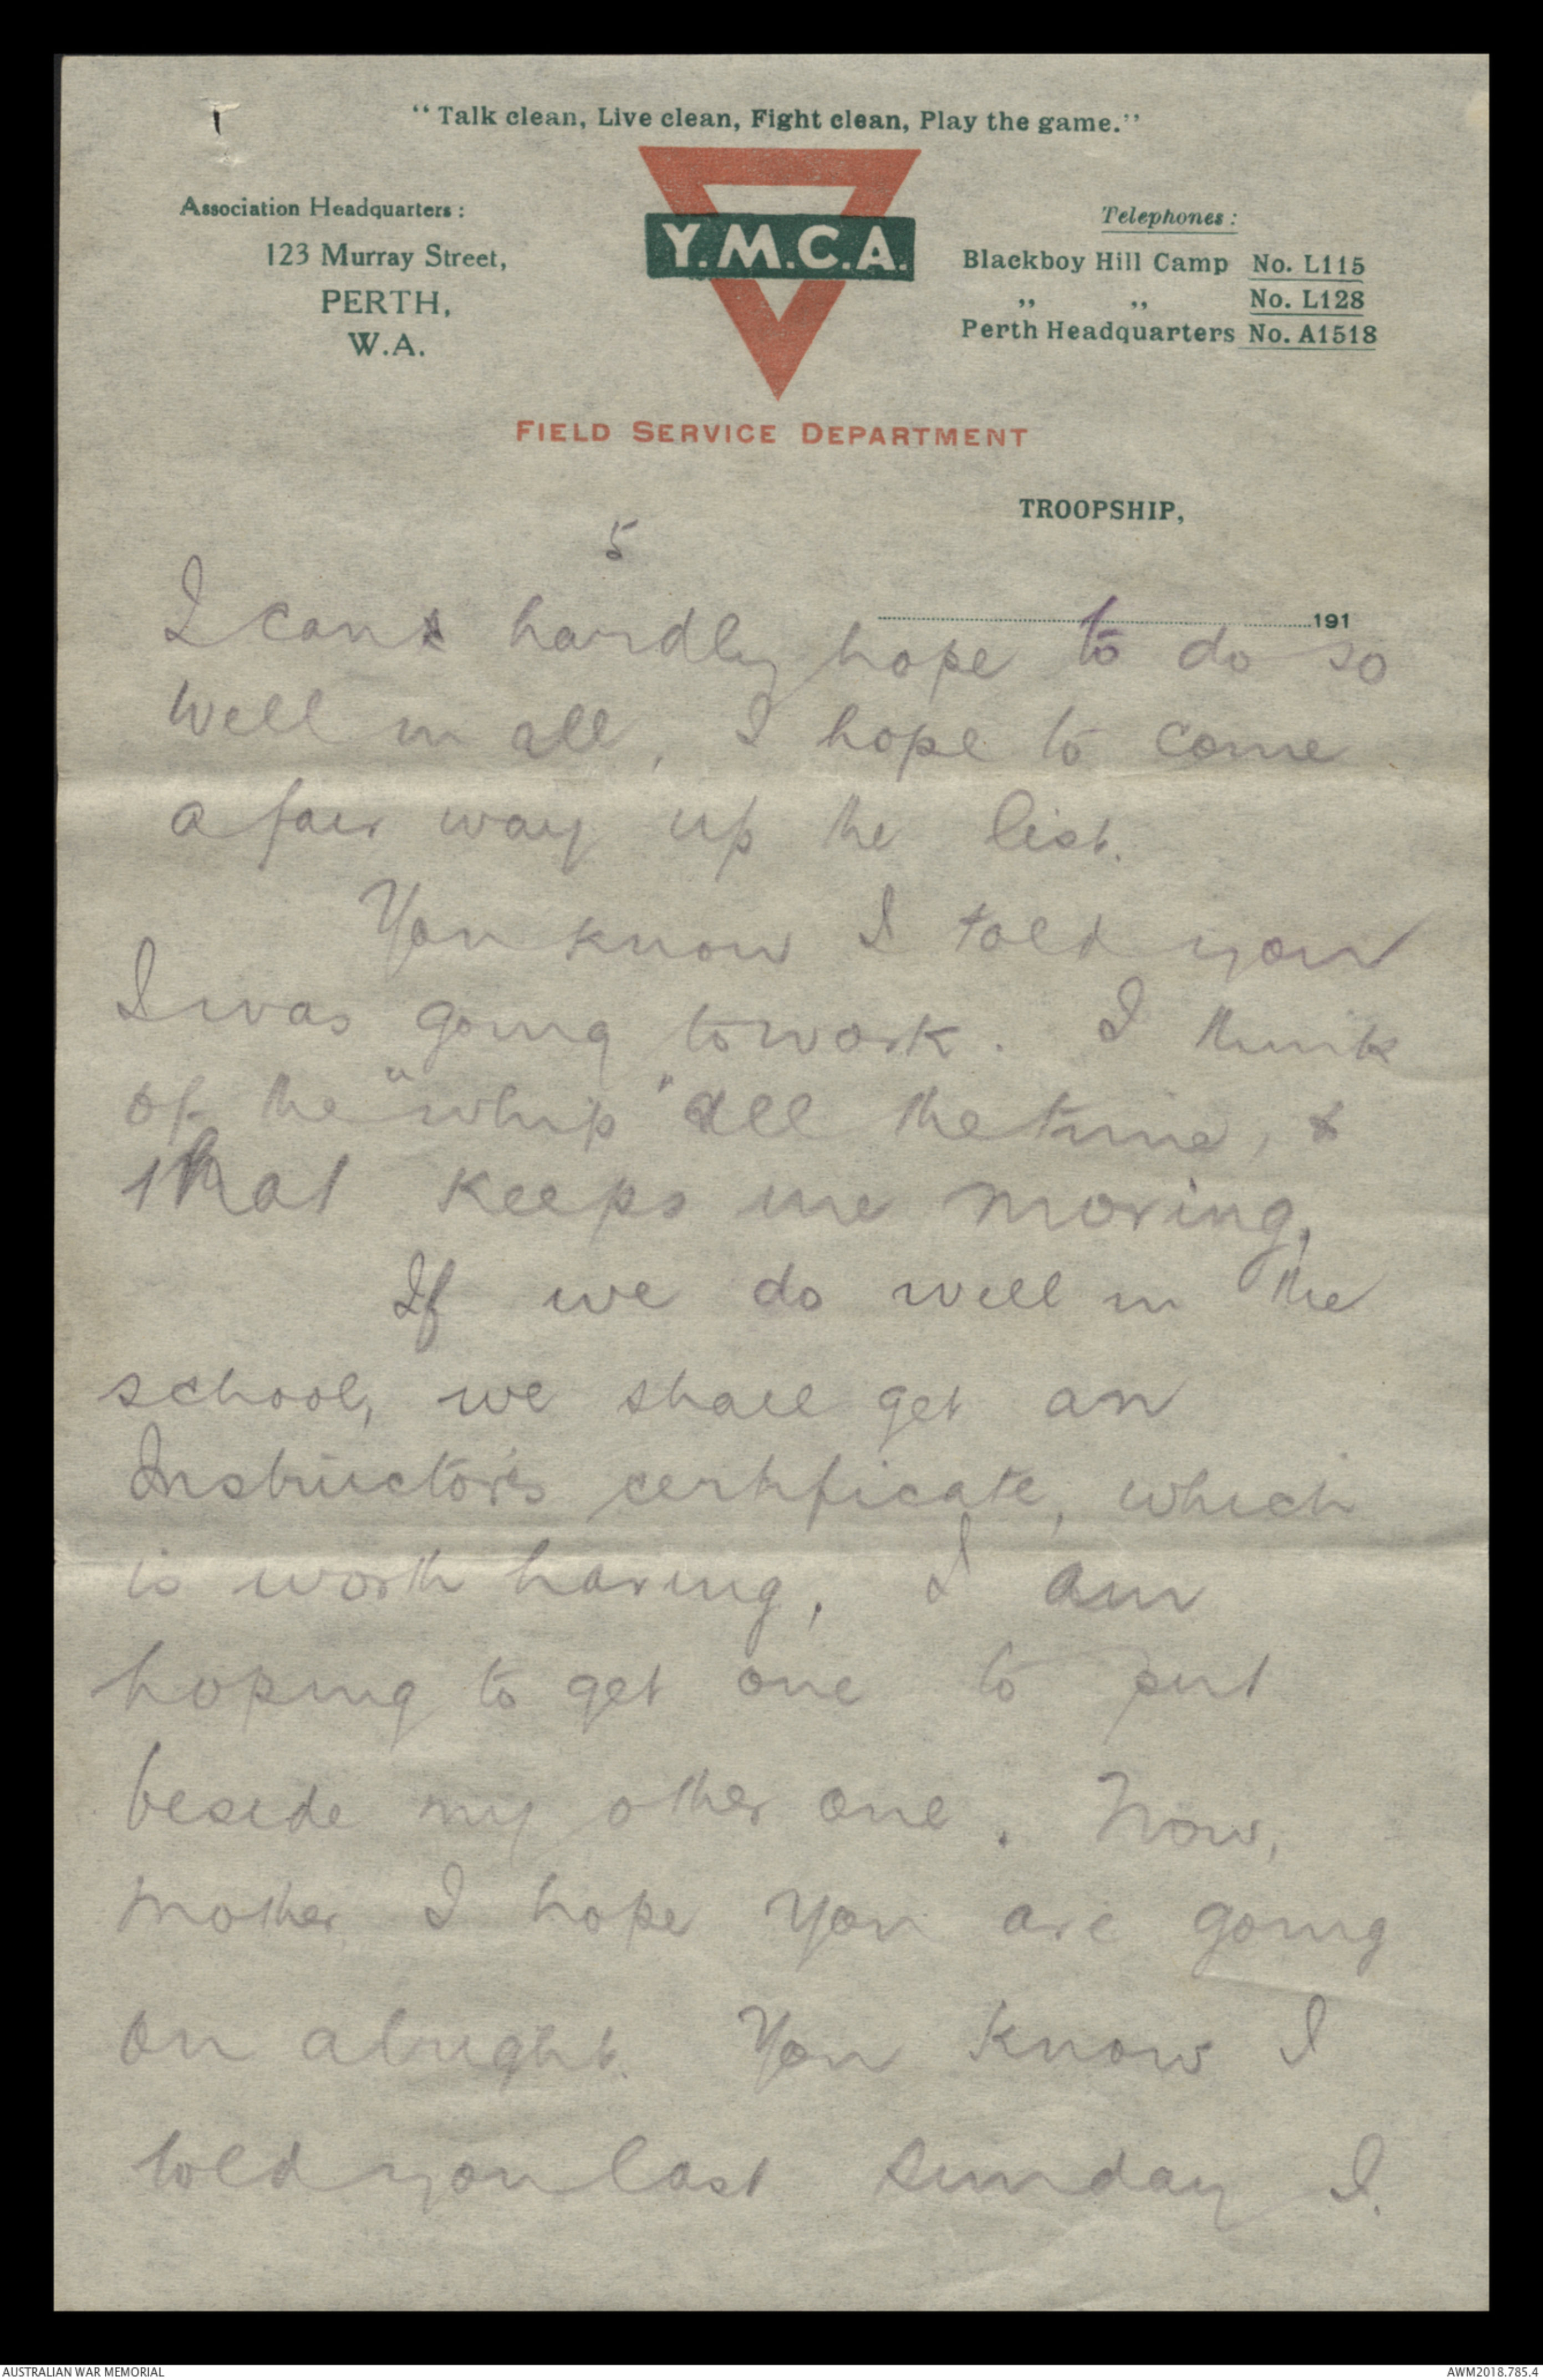 “Talk clean, Live clean, Fight clean, Play the game.”
Association Headquarters:
123 Murray Street,
PERTH,
W.A.
Y.M.C.A.
Telephones:
Blackboy Hill Camp No. L115
„ „ No. L128
Perth Headquarters No. A1518
FIELD SERVICE DEPARTMENT
TROOPSHIP,
5
191
I can't hardly hope to do so
well in all, I hope to come
a fair way up the list.
You know I told you
I was going to work. I think
of the "whip" all the time, &
that keeps me moving,
If we do well in the
school, we shall get an
Instructor's certificate, which
is worth having, I am
hoping to get one to put
beside my other one. Now,
mother I hope you are going
on alright. You know I
told you last Sunday I.
AUSTRALIAN WAR MEMORIAL
AWM2018.785.4